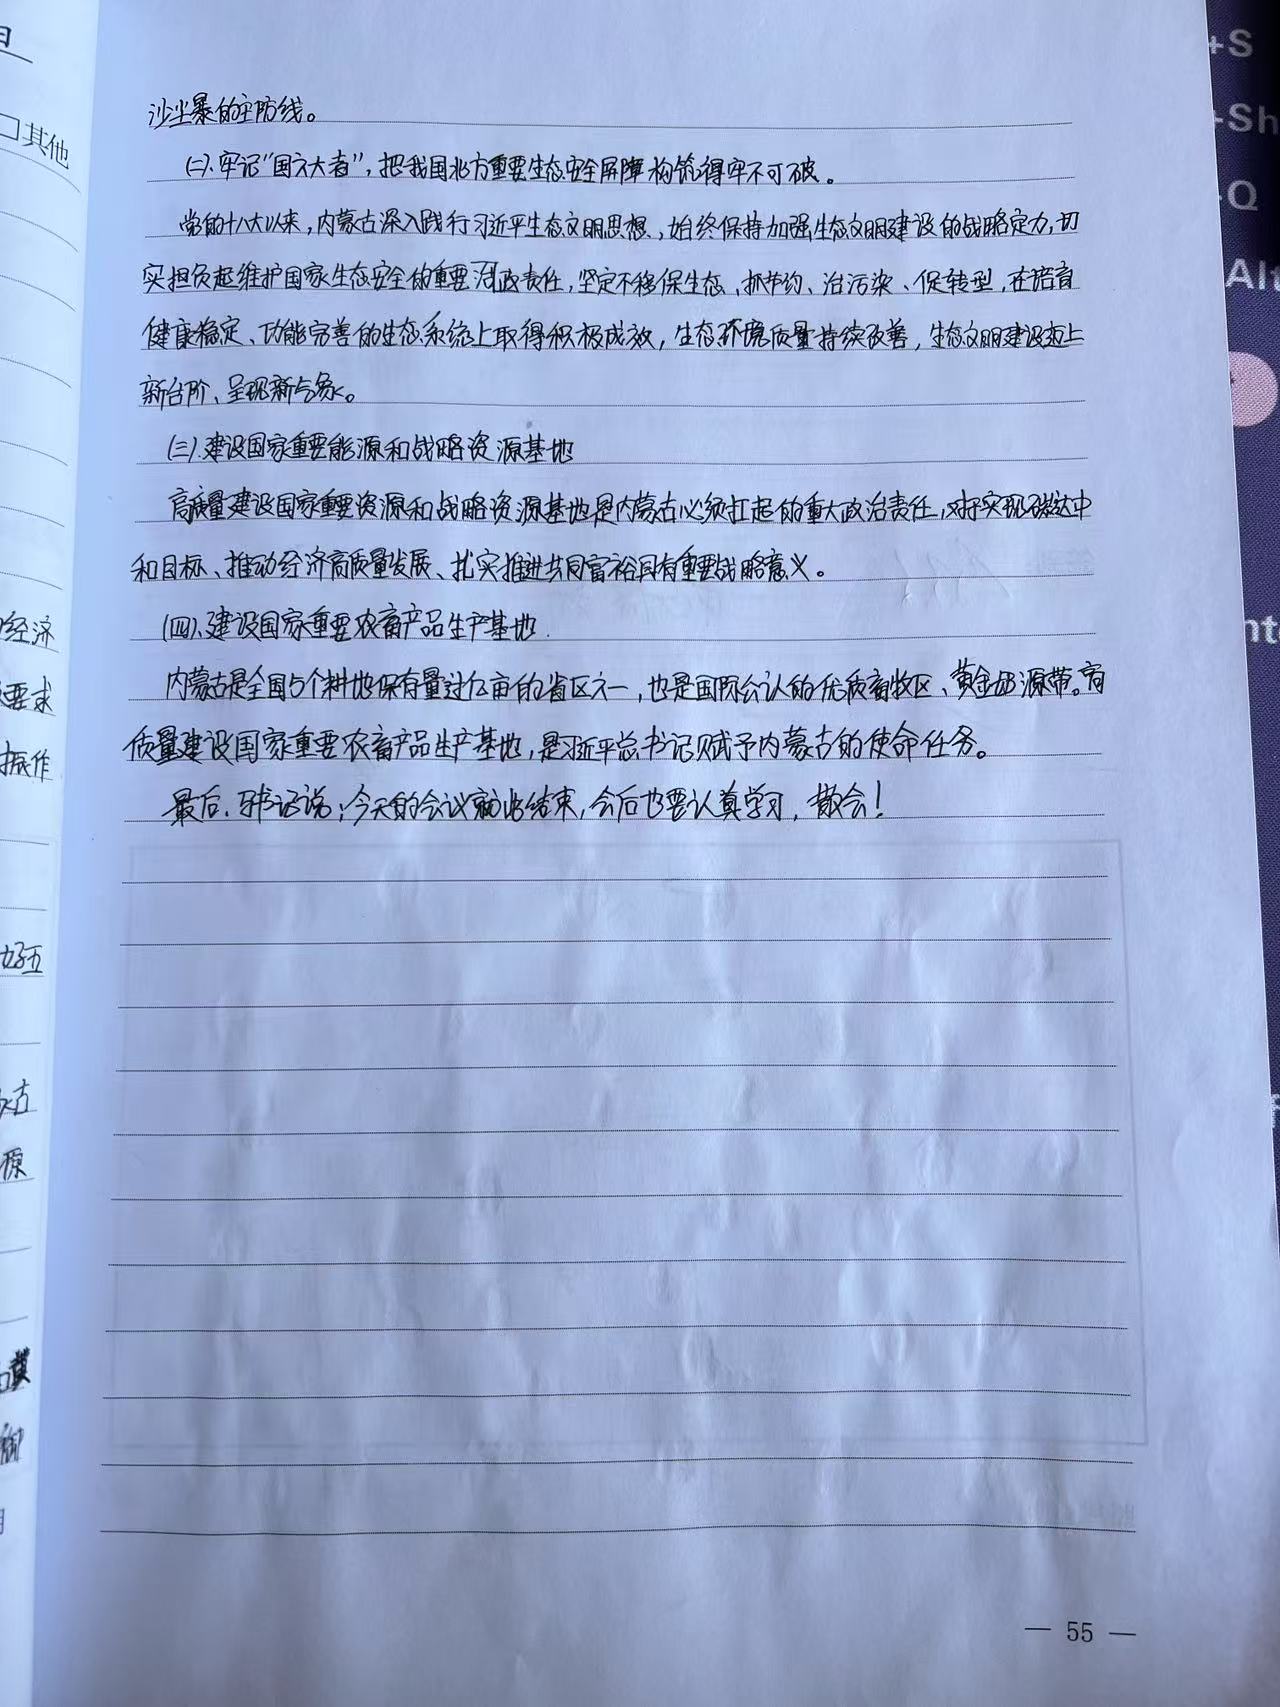 沙尘暴的主防线。
(二).牢记“国之大者”,把我国北方重要生态安全屏障构筑得牢不可破。
党的十八大以来,内蒙古深入践行习近平生态文明思想,始终保持加强生态文明建设的战略定力,切
实担负起维护国家生态安全的重要政责任,坚定不移保生态、抓节约、治污染、促转型,在培育
健康稳定、功能完善的生态系统上取得积极成效,生态环境质量持续改善,生态文明建设迈上
新台阶、呈现新气象。
(三).建设国家重要能源和战略资源基地
高质量建设国家重要资源和战略资源基地是内蒙古必须扛起的重大政治责任,对于实现碳达中
和目标、推动经济高质量发展、扎实推进共同富裕具有重要战略意义。
(四).建设国家重要农畜产品生产基地.
内蒙古是全国5个耕地保有量过亿亩的省区之一,也是国际公认的优质畜牧区、黄金奶源带。高
质量建设国家重要农畜产品生产基地,是习近平总书记赋予内蒙古的使命任务。
最后,书记说:今天的会议就此结束,会后也要认真学习,散会!
— 55 —
其他
经济
要求
振作
好五
古
源
冀
+S
+Sh
Q
Alt